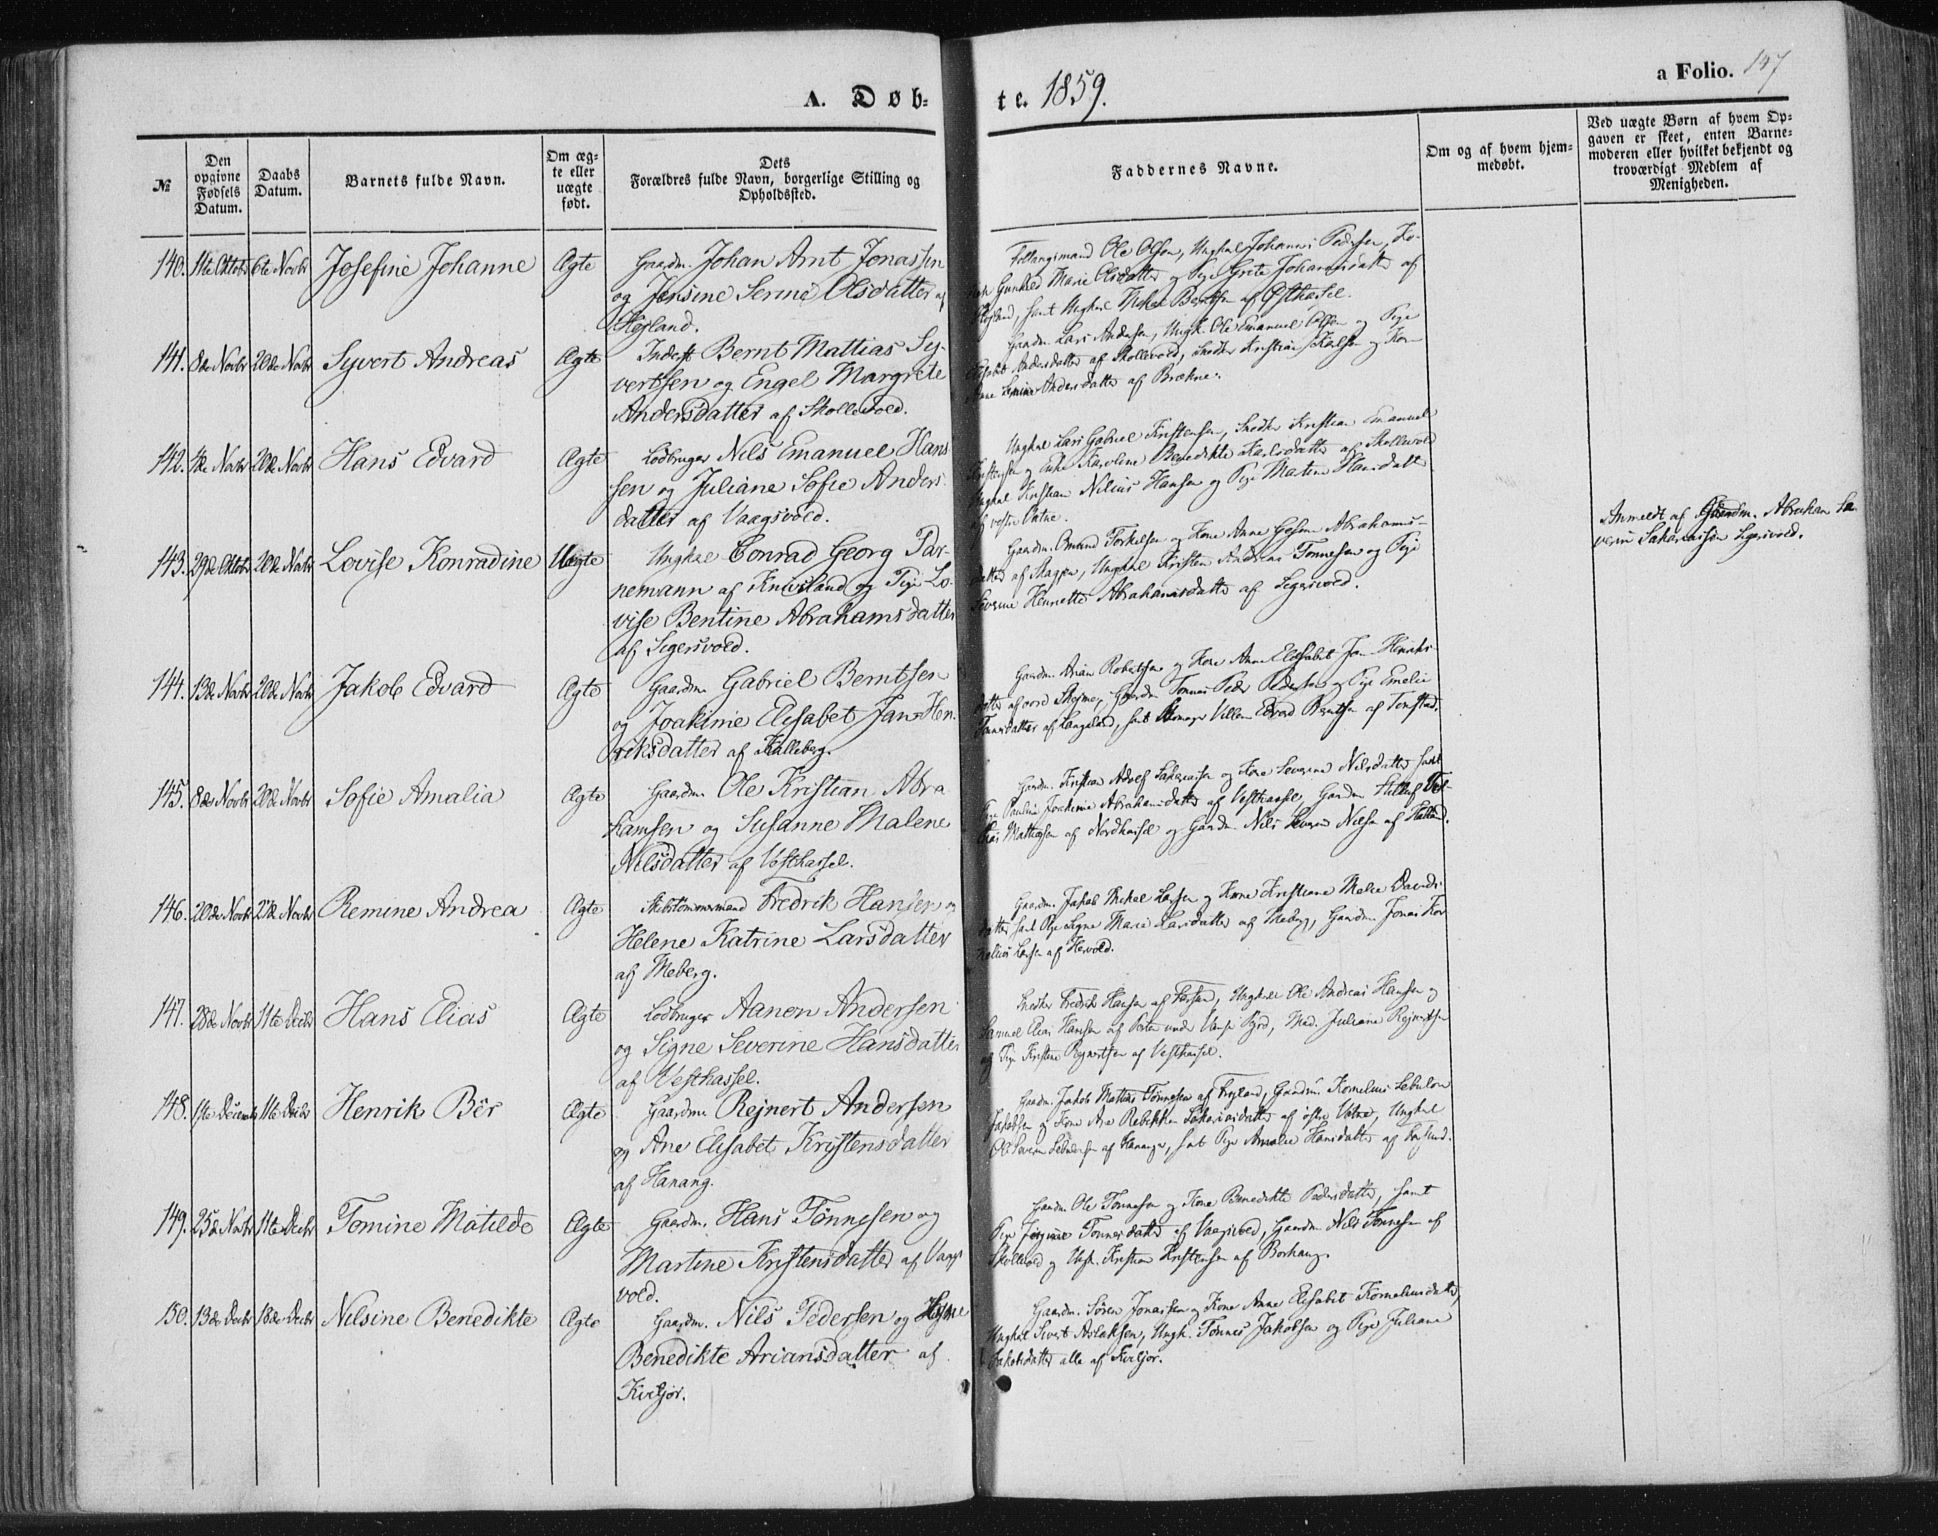 A. Døb-
te. 1859.
a Folio. 147
№
Den opgivne Fødsels Datum.
Daabs Datum.
Barnets fulde Navn.
Om ægte eller uægte født.
Dets Forældres fulde Navn, borgerlige Stilling og Opholdssted.
Faddernes Navne.
Om og af hvem hjemmedøbt.
Ved uægte Børn af hvem Opgaven er skeet, enten Barnemoderen eller hvilket bekjendt og troværdigt Medlem af Menigheden.
140. 11te Oktob 6te Novbr Josefine Johanne Ægte Gaardm. Johan Arnt Jonassen
og Jensine Serine Olsdatter af
Højland.
Ole Olsen, Ungkal Johannes Pedersen, Ko-
ne Gunhild Marie Olsdatter og Pige Grete Johannesdatter af
Højland, samt Ungkal Mikal Berntsen af Østhassel.
141. 8de Novbr 20de Novbr Syvert Andreas Ægte Inderst Bernt Mattias Sy-
vertsen og Engel Margrete
Andersdatter af Skollevold.
Gaardm. Lars Andersen, Ungk. Ole Emanuel Olsen og Pige
Elisabet Andersdatter af Skollevold, Snedker Kristian Karlsen og Kone
Anne Andersdatter af Brækne.
142. 4de Novbr 20de Novbr Hans Edvard Ægte Lodbruger Nils Emanuel Han-
sen og Juliane Sofie Anders-
datter af Vaagsvold.
Ungkal Lars Gabriel Kristensen, Snedker Kristian Emanuel
Kristensen og Enke Karoline Benedikte Karlsdatter af Skollevold
Ungkal Kristian Nilius Hansen og Pige Martine Hansdatter
af vestre Vatne.
143. 29de Oktob 20de Novbr Lovise Konradine Uægte Ungkal Conrad Georg Par-
nemann af Knivsland og Pige Lo-
vise Bentine Abrahamsdatter
af Sigersvold.
Gaardm. Omund Torkelsen og Kone Anne Abrahams-
datter af Skagen, Ungkal Kristen Andreas Tønnesen og Pige
Severine Henriette Abrahamsdatter af Sigersvold.
Anmeldt af Gaardm. Abraham Se-
verin Sakariassen Sigersvold.
144. 13de Novbr 20de Novbr Jakob Edvard Ægte Gaardm. Gabriel Berntsen
og Joakimie Elisabet Jan Hen-
riksdatter af Kalleberg.
Gaardm. Arian Robertsen og Kone Anne Elisabet Jan Henriks-
datter af Gaardm Tønnes Peder Pedersen og Pige Emelie
Tønnesdatter af Langeland, samt Villem Edvard Berntsen af Tonstad.
145. 8de Novbr 20de Novbr Sofie Amalia Ægte Gaardm. Ole Kristian Abra
hamsen og Susanne Malene
Nilsdatter af Vesthassel.
Gaardm. Kristian Adolf Sakariasen og Kone Severine Nilsdatter samt
Pige Pauline Joakimie Abrahamsdatter af Vesthassel, Gaardm
Mattiassen af Nordhassel og Gaardm Nils Severin Nilsen af Hatland.
146. 20de Novbr 27de Novbr Remine Andrea Ægte Skibstømmermand Fredrik Hansen og
Helene Katrine Larsdatter
af Meberg.
Gaardm. Jakob Mikal Larsen og Kone Kristiane Malie Davids-
datter samt Pige Signe Marie Larsdatter af Meberg, Gaardm Jonas Kor
nelius Larsen af Hervold.
147. 28de Novbr 11te Decbr Hans Elias Ægte Lodbruger Aanen Andersen
og Signe Severine Hansdatter
af Vesthassel.
Snedker Fredrik Hansen af Farsund, Ungkarle Ole Andreas Hansen og
Samuel Elias Hansen af under Vanse Mad. Juliane Rejnertsen
og Pige Kristine Rejnertsen af Vesthassel.
148. 1te Decemb 11te Decbr Henrik Bër Ægte Gaardm Rejnert Andersen
og Ane Elisabet Kristensdatter
af Hanang.
Gaardm. Jakob Mattias Tønnesen af Gaardm. Kornelius Sebulon
Jakobsen og Kone Ane Rebekka Sakariasdatter af østre Vatne, Ungkal
Ole Severin af Hanang, samt Pige Amalie Hansdatter af Farsund.
149. 25de Novbr 11te Decbr Tomine Matilde Ægte Gaardm. Hans Tönnesen og
Martine Kristensdatter af Vaags
vold.
Gaardm Ole Tønnesen og Kone Benedikte Pedersdatter, samt
Pige Tønnesdatter af Vaagsvold, Gaardm Nils Tønnesen af
Skollevold og Ungk. Kristian Kristensen af Borhaug.
150. 13de Decbr 18de Decbr Nilsine Benedikte Ægte Gaardm. Nils Pedersen og
Benedikte Ariansdatter af
Kviljor.
Gaardm. Søren Jonassen og Kone Anne Elisabet Korneliusdatter,
Ungkal Sivert Aslaksen, Ungk. Tønnes Jakobsen og Pige Juliane
Jakobsdatter alle af Kviljor.